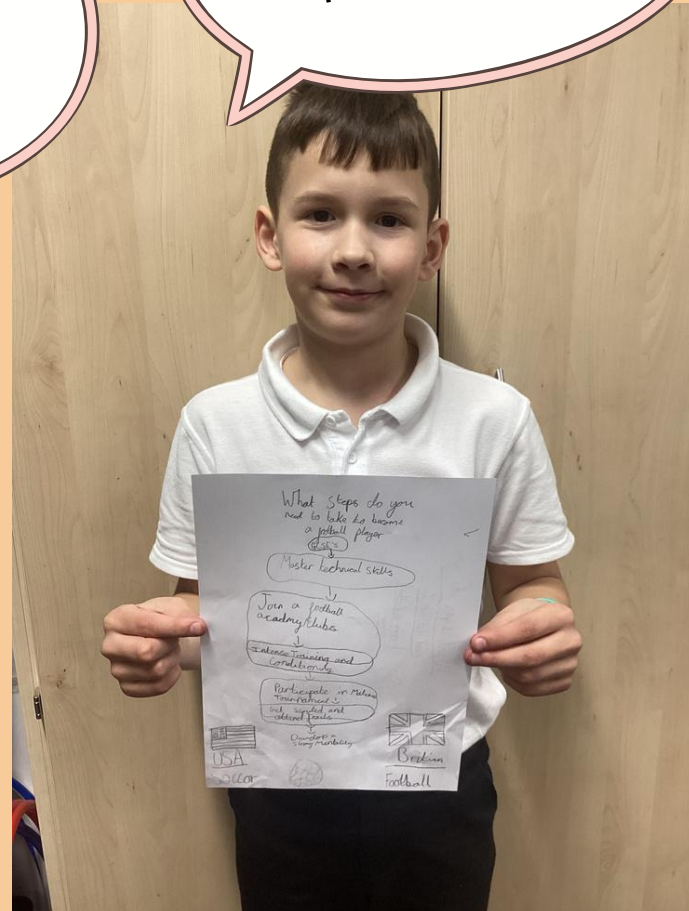 What steps do you
need to take to become
a football player
Master technical skills
Join a football
academy/clubs
Intense Training and
Conditioning
Participate in
Tournament
Get scouted and
attend trails
strong Mentality
USA
Soccor
Football